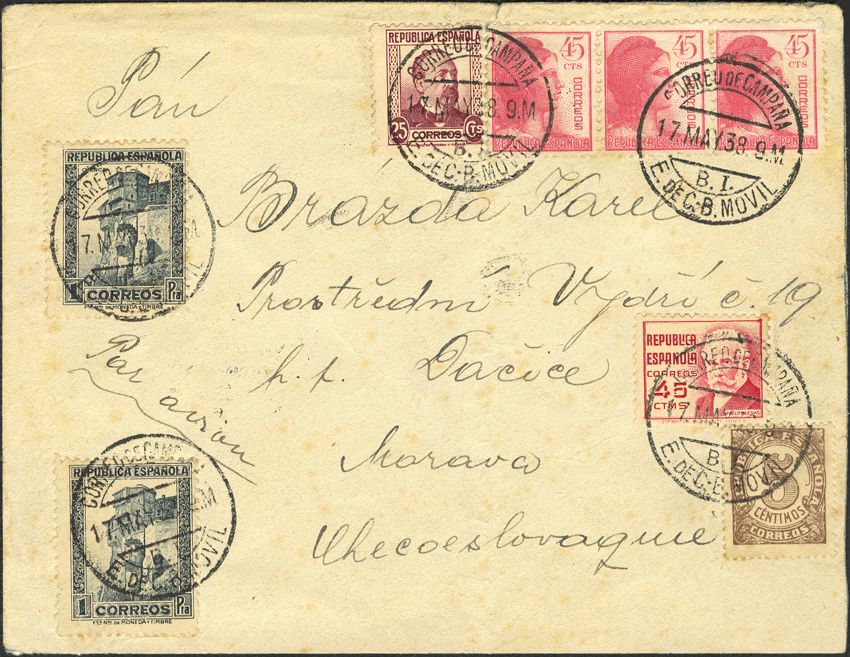 REPUBLICA ESPAÑOLA
25 CORREOS Cts
45 CTS CORREOS
REPUBLICA ESPAÑOLA
45 CTS CORREOS
REPUBLICA ESPAÑOLA
45 CTS CORREOS
REPUBLICA ESPAÑOLA
CORREO DE CAMPAÑA
17 MAY 38. 9.M
B. I.
E. DE C.-B. MOVIL
CORREO DE CAMPAÑA
17 MAY 38. 9.M
B. I.
E. DE C.-B. MOVIL
Pán
Brázda Karel
Prostřední Vydří č. 19
h. p. Dačice
Morava
Checoeslovaquie
Par avión
REPUBLICA ESPAÑOLA
1 CORREOS Pta
17 MAY
REPUBLICA ESPAÑOLA
1 CORREOS Pta
CORREO DE CAMPAÑA
17 MAY
E. DE C.-B. MOVIL
REPUBLICA
ESPAÑOLA
CORREOS
45
CTMS
CORREO DE CAMPAÑA
17 MAY 38. 9.M
E. DE C.-B. MOVIL
CENTIMOS
CORREOS